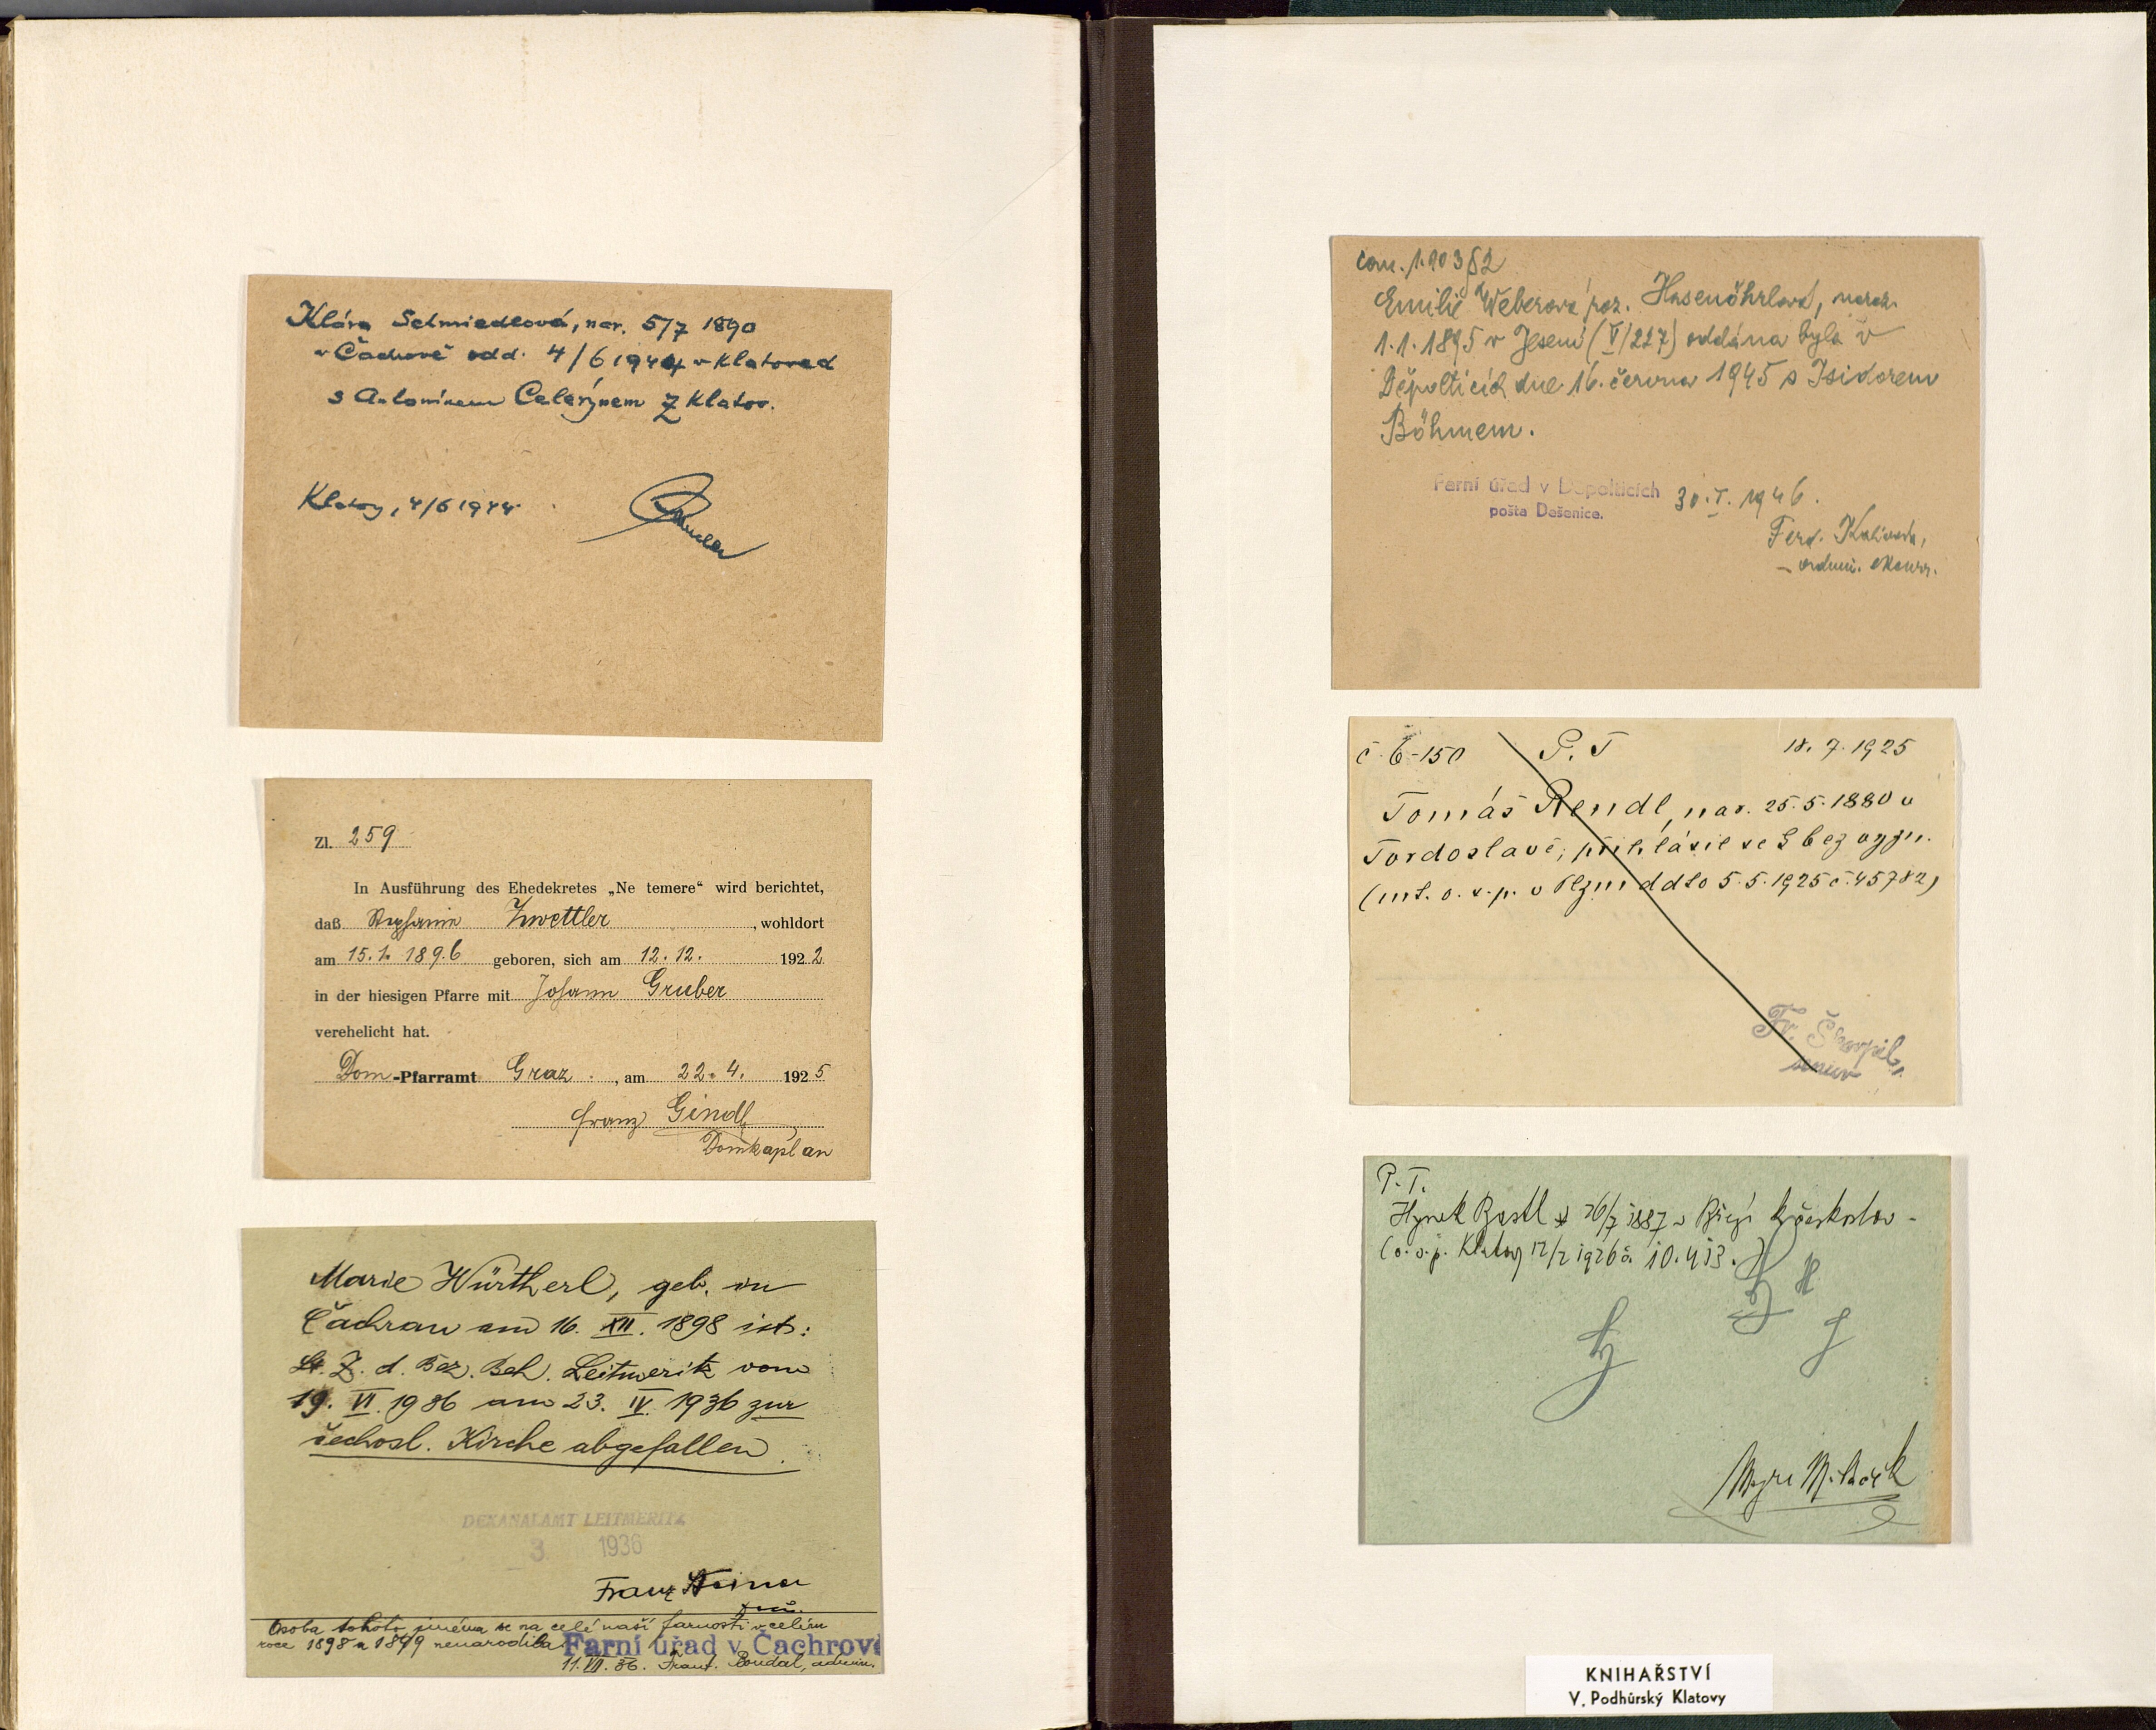 Klára Schmiedlová, nar. 5/7 1890
v Čachrově odd. 4/6 1944 v Klatovech
s Antonínem Celerýnem z Klatov.
Klatovy, 4/6 1944
Zl. 259
In Ausführung des Ehedekretes „Ne temere“ wird berichtet,
daß Stephanie Zwettler, wohldort
am 15.1. 1896 geboren, sich am 12.12. 1922
in der hiesigen Pfarre mit Johann Gruber
verehelicht hat.
Dom-Pfarramt Graz, am 22.4. 1925
Franz Gindl
Domkaplan
Marie Würtherl, geb. in
Čachrau am 16. XII. 1898 ist:
Lt. Z. d. Bez. Beh. Leitmeritz vom
19. VI. 1936 am 23. IV. 1936 zur
čechosl. Kirche abgefallen.
DEKANALAMT LEITMERITZ
3 1936
Franz
Osoba tohoto jména se na celé naší farnosti v celém
roce 1898 a 1899 nenarodila
Farní úřad v Čachrově
11. VII. 36. Frant. Boudal, admin.
can. 1103 § 2
Emilie Weberová roz. Hasenöhrlová, naroz.
1.1.1895 v Jesení (V/227) oddána byla v
Děpolticích dne 16. června 1945 s Isidorem
Böhmem.
Farní úřad v Depolticích 30.I.1946.
pošta Dešenice.
Ferd. Kalivoda,
č. 6-150 P.T 18.7.1925
Tomáš Rendl, nar. 25.5.1880 v
Tordoslavě, přihlásil se k bez vyzn.
(int. o.s.p. v Plzni ddto 5.5.1925 č. 45782)
Fr. Škorpil,
senior
P.T.
Hynek Bastl * 26/7 1887 v Březí k českoslov-
(o.s.p. Klatovy 12/2 1926 č. 10.413.)
KNIHAŘSTVÍ
V. Podhůrský Klatovy